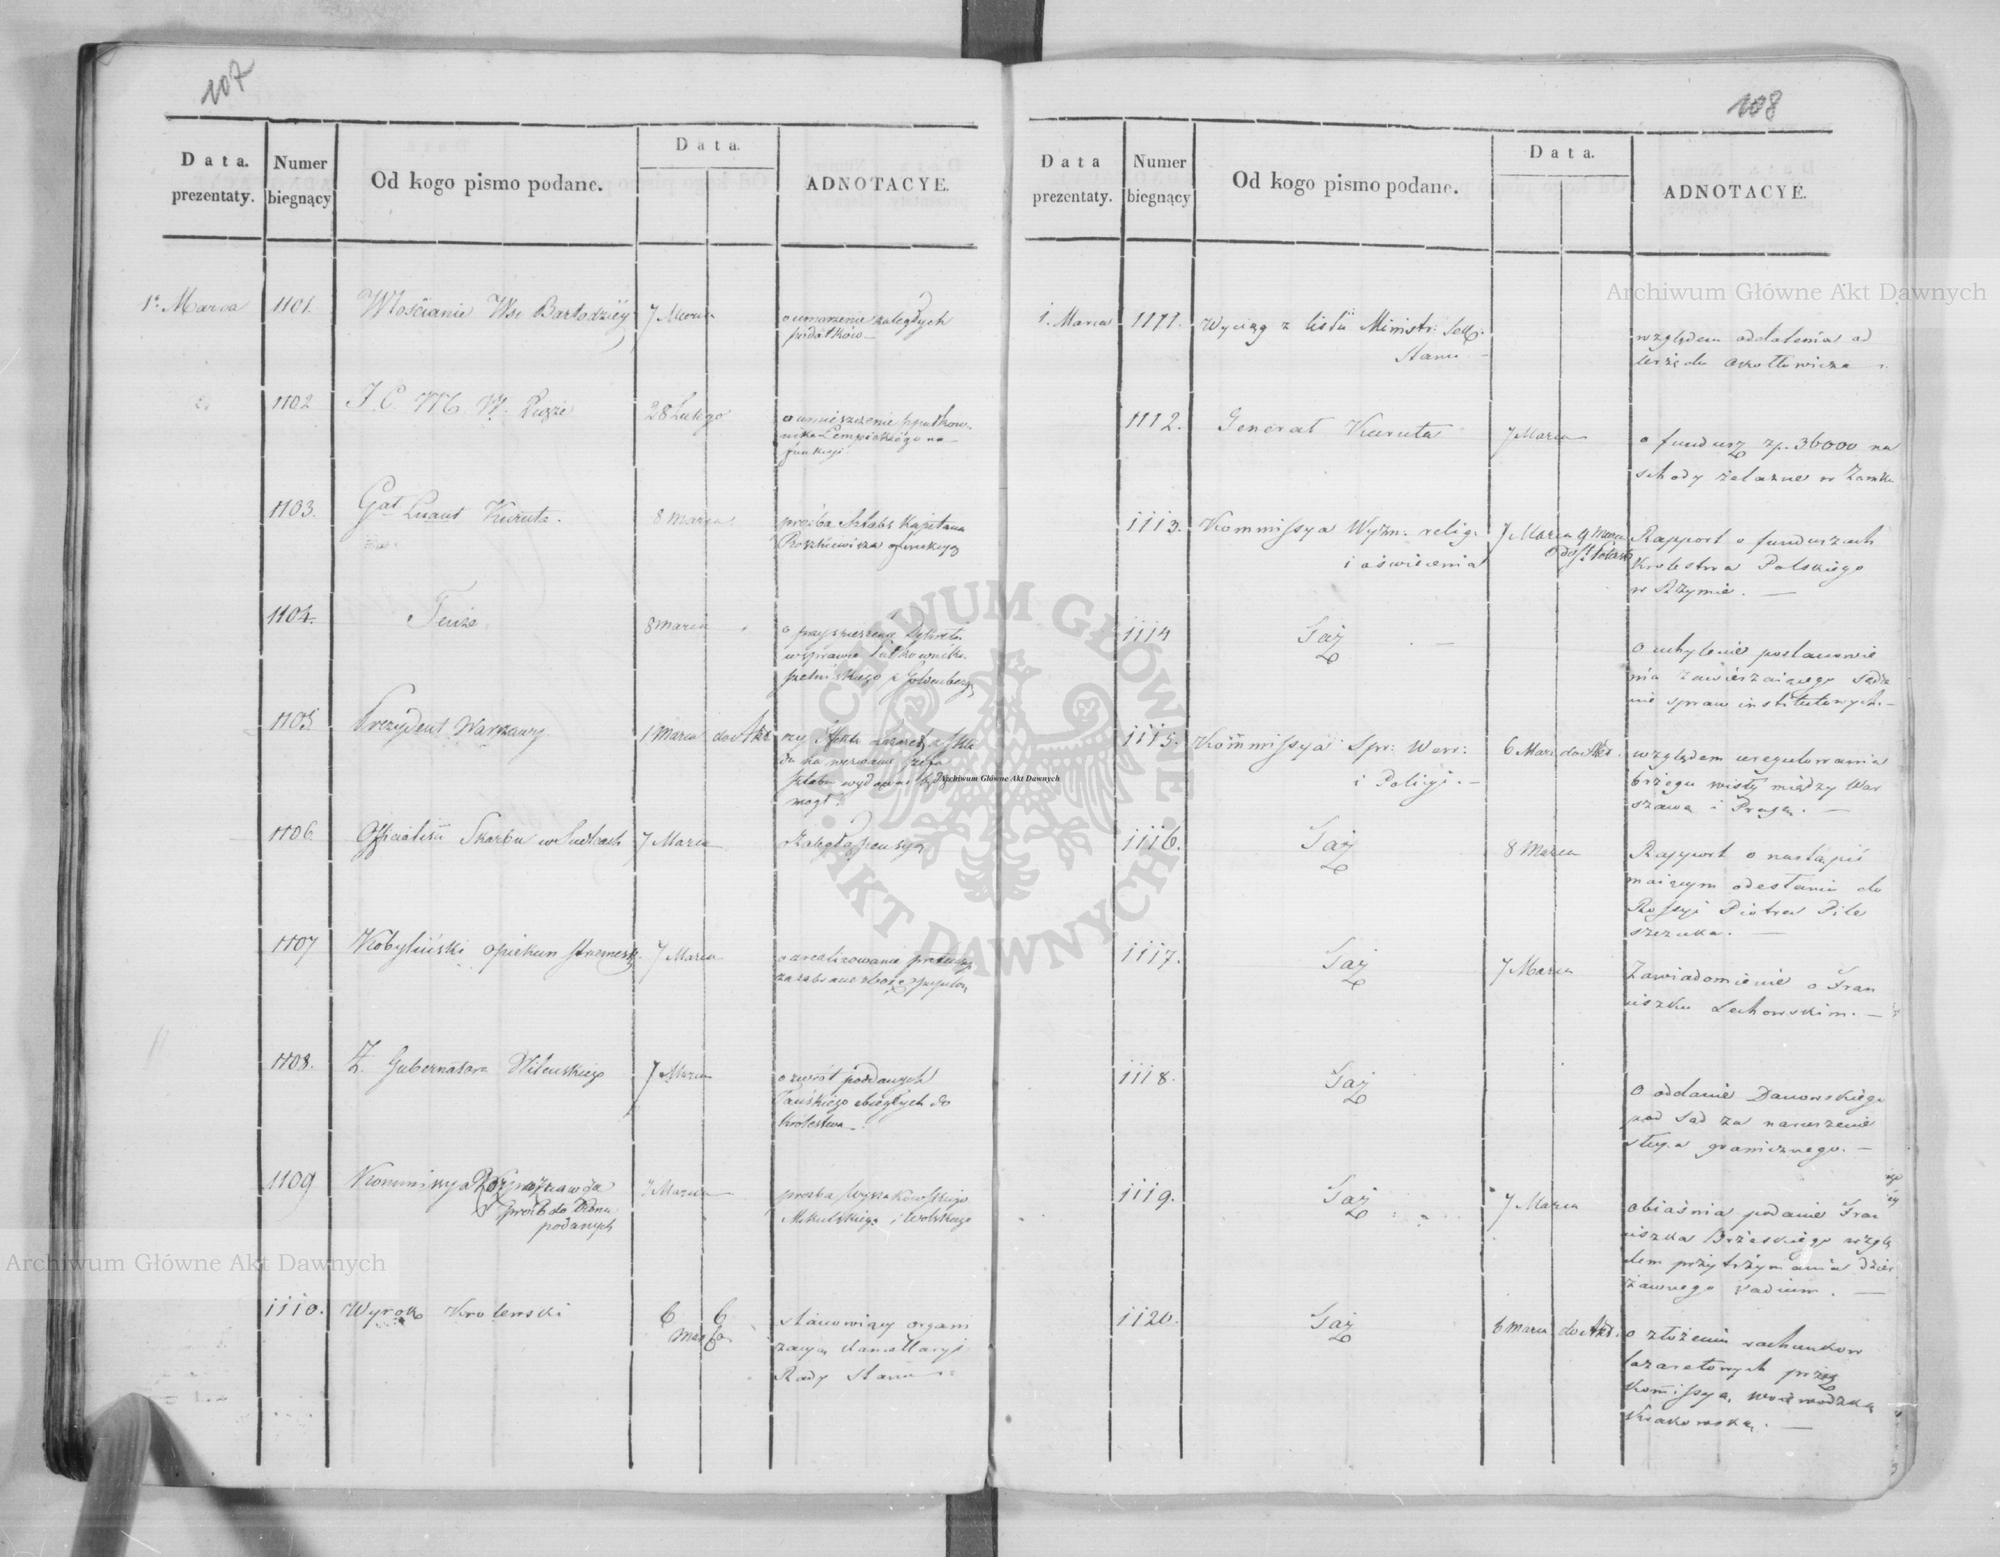 107
Data. prezentaty.
Numer biegnący
Od kogo pismo podane.
Data.
ADNOTACYE.
1. Marca 1101. Włościanie Wsi Bartodziey 7 Marca o umorzenie zaległych
podatków
1102 J. C. M. W. 28 Lutego o umieszczenie ppułkow-
nika Lempickiego na
funkcyi
1103. Gał Lnant Kuruta. 8 Marca prozba Sztabs Kapitana
Roszkiewicza
1104. Tenże 8 Marca o przyspieszenie Dekretu
w sprawie Pułkownika
1105 Prezydent Warszawy 1 Marca do Akt
du na wezwanie Szefa
Sztabu wydawane
mogł.
1106. Officialisci Skarbu w Suwłkach 7 Marca o zaległą pensyą
1107 Kobyliński opiekun 7 Marca
za zabrane zboże
1108. Z. Gubernatora Wileńskiego 7 Marca o zwrót poddanych
zbiegłych do
Królestwa
1109 Kommissya Rozpoznawcza
próśb do Tronu
podanych 7 Marca prozba Wyszakowskiego
Mikulskiego i Wolskiego
1110. Wyrok Krolewski 6 6
Marca Stanowiący organi
zacyą Kancellaryi
Rady Stanu
108
Data prezentaty.
Numer biegnący
Od kogo pismo podane.
Data.
ADNOTACYE.
1. Marca 1111. Wyciąg z listu Ministr: Sekr.
Stanu względem oddalenia od
urzędu
1112. Generał Kuruta 7 Marca o fundusz zp. 36000 na
schody żelazne w Zamku
1113. Kommissya Wyzn. relig.
i oświecenia 7 Marca 9 Marca Rapport o funduszach
Krolestwa Polskiego
w Rzymie.
1114 Taż o uchylenie postanowie
nia zawieszaiącego Sądze
nie spraw institutowych.
1115. Kommissya Spr: Wew:
i Policyi. 6 Marc do Akt. względem uregulowania
brzegu wisły między War
szawą i Pragą.
1116. Taż 8 Marca Rapport o nastąpić
maiącym odesłaniu do
Rossyi Piotra Pile
szczuka.
1117. Taż 7 Marca Zawiadomienie o Fran
ciszku Lechowskim.
1118. Taż o oddanie Danowskiego
pod Sąd za naruszenie
słupa granicznego.
1119. Taż 7 Marca obiaśnia podanie Fran
ciszka Brzeskiego wzglę
dem przytrzymania dzier
żawnego vadium.
1120. Taż 6 Marca do Akt. o złożeniu rachunkow
lazaretowych przez
Kommissyą wojewodzką
Krakowską.
Archiwum Główne Akt Dawnych
Archiwum Główne Akt Dawnych
Archiwum Główne Akt Dawnych
ARCHIWUM GŁÓWNE · AKT DAWNYCH ·